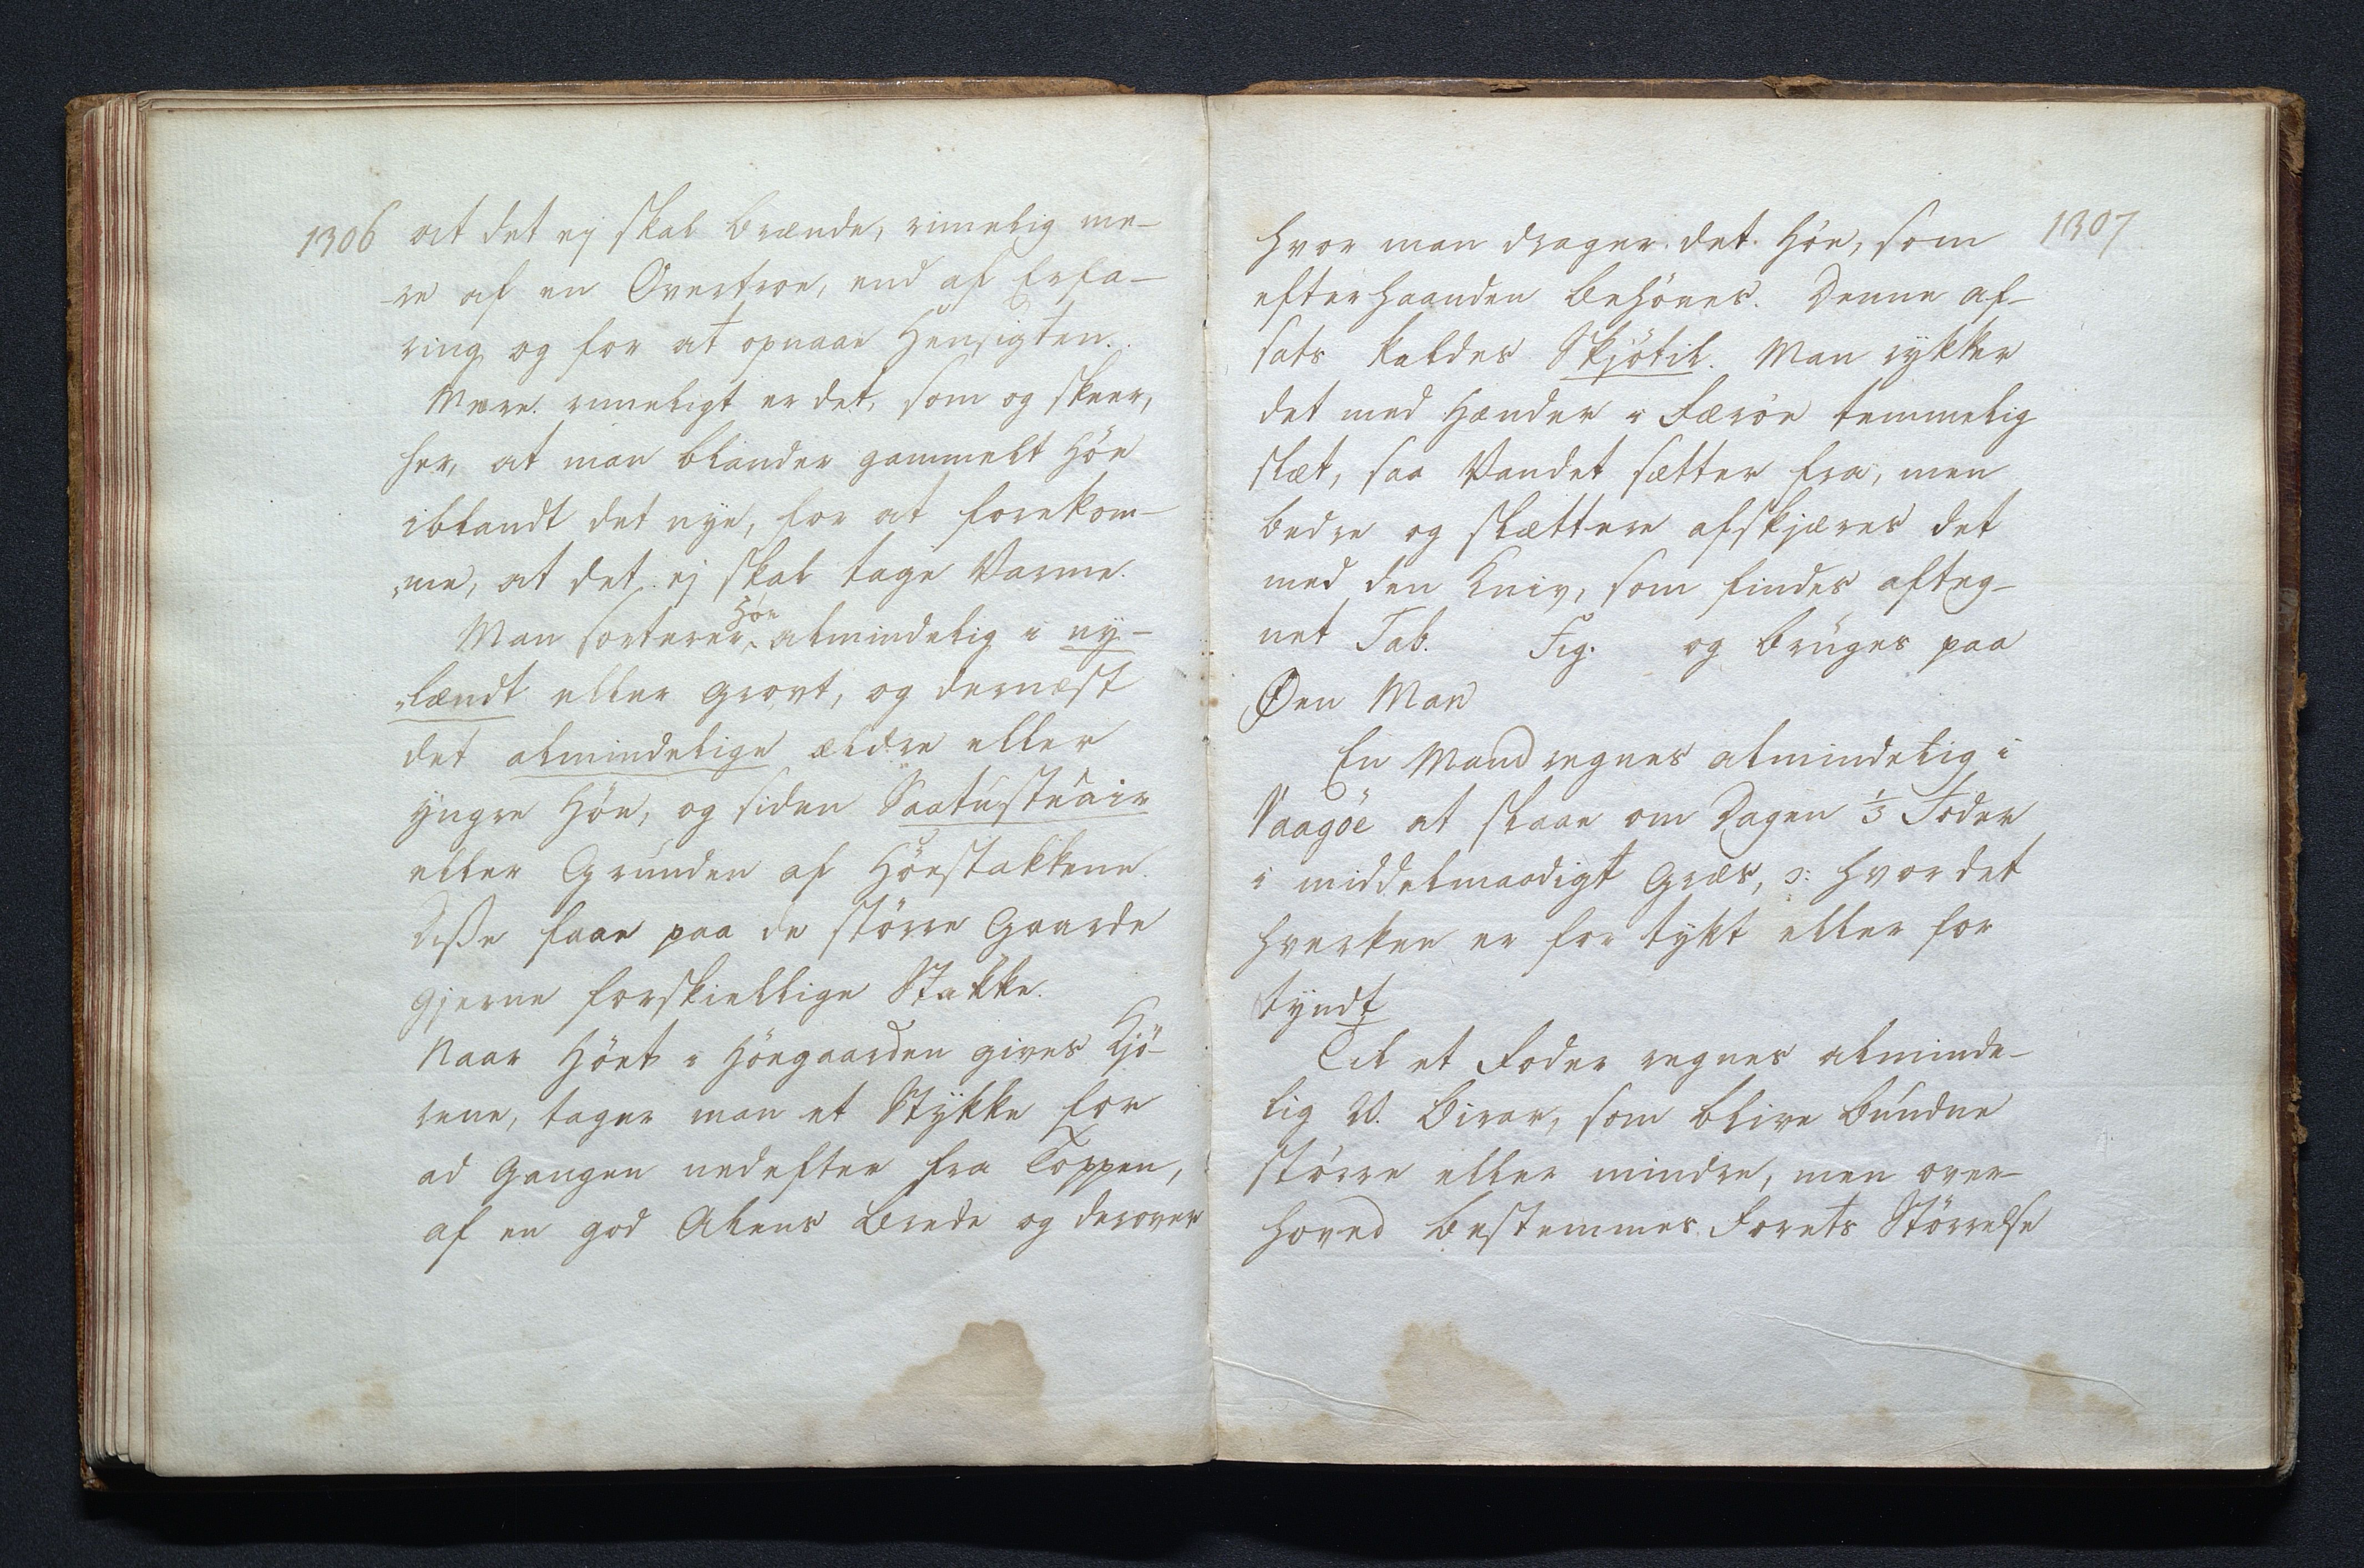 1306
at det ej skal brænde, rimelig me-
re af en Overtroe, end af Erfa-
ring og for at opnaae Hensigten.
Mere rimeligt er det, som og skeer,
her, at man blander gammelt Höe
iblandt det nye, for at forekom-
me, at det ej skal tage Varme.
Höe
Man sorterer almindelig i ny-
lændt eller grovt, og dernæst
det almindelige ældre eller
yngre Höe, og siden Saatusteair
eller Grunden af Höestakkene.
Disse faae paa de större Gaarde
gjerne forskiellige Stakke.
Naar Höet i Höegaarden gives Kjö-
rene, tager man et Stykke for
ad Gangen nedefter fra Toppen,
af en god Alens Brede og derover
1307
hvor man drager det Höe, som
efterhaanden behöves. Denne af-
sats kaldes Skjötil. Man rykker
det med Hænder i Færöe temmelig
slæt, saa Vandet sætter fra, men
bedre og slættere afskjæres det
med den Kniv, som findes afteg-
net Tab. Fig. og brüges paa
Øen Man
En Mand regnes almindelig i
Vaagöe at slaae om Dagen 1/3 Foder
i middelmaadigt Græs, ɔ: hvor det
hverken er for tykt eller for
tyndt
Til et Foder regnes alminde-
lig Birar, som blive bundne
större eller mindre, men over-
hoved bestemmes Forets Störrelse